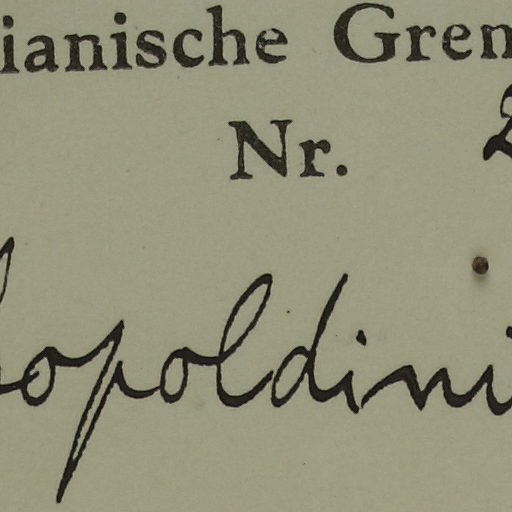 ianische Gren
Nr. 2
eopoldini